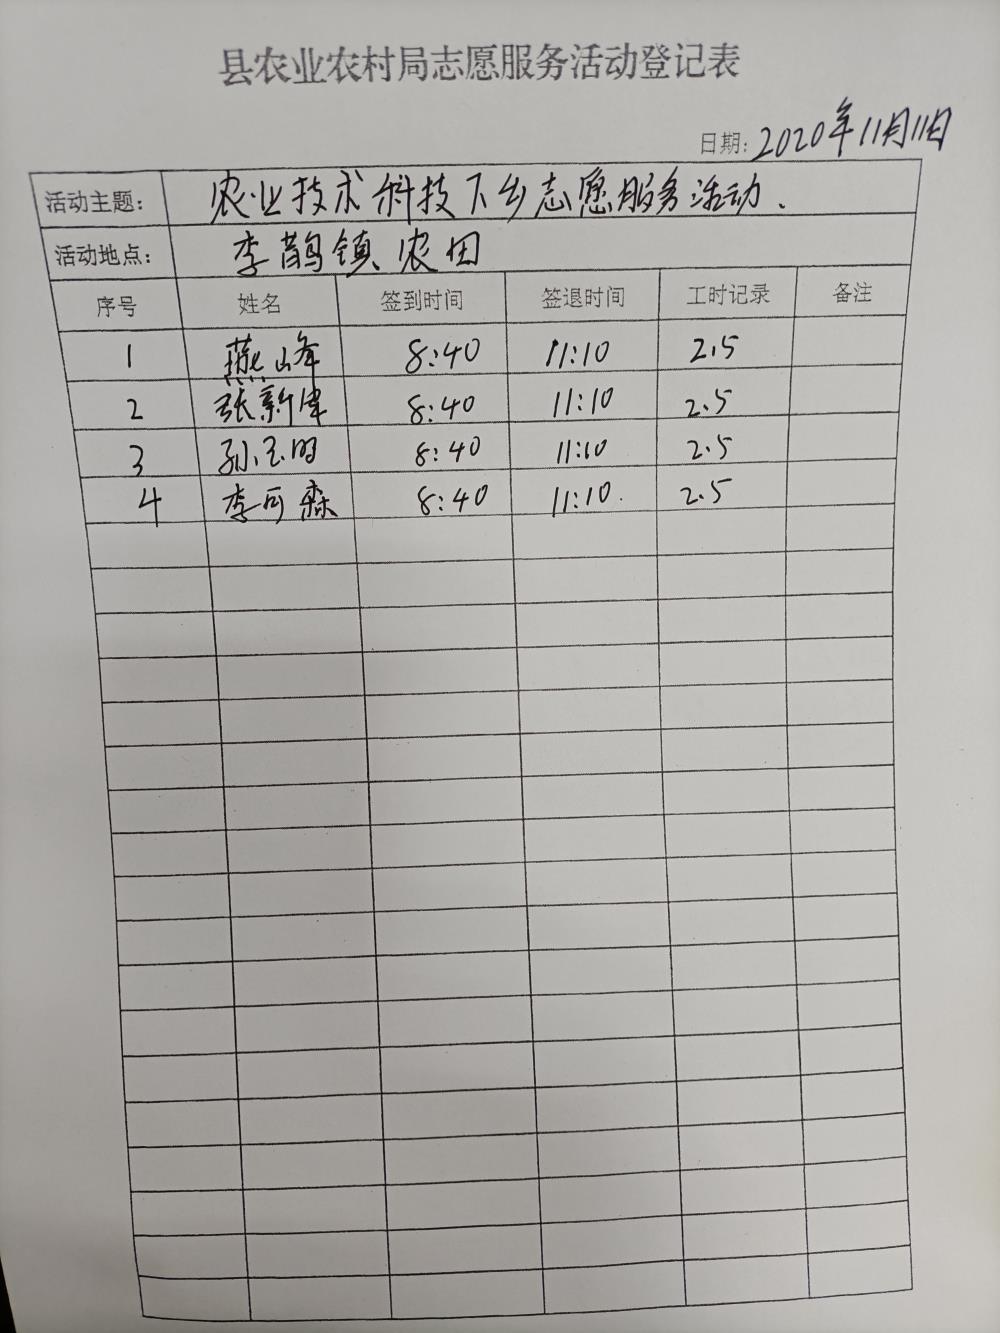 县农业农村局志愿服务活动登记表
日期: 2020年11月11日
活动主题: 农业技术科技下乡志愿服务活动.
活动地点: 李鹊镇农田
序号 姓名 签到时间 签退时间 工时记录 备注
1 燕山峰 8:40 11:10 2.5
2 张新律 8:40 11:10 2.5
3 孙玉明 8:40 11:10 2.5
4 李可森 8:40 11:10. 2.5